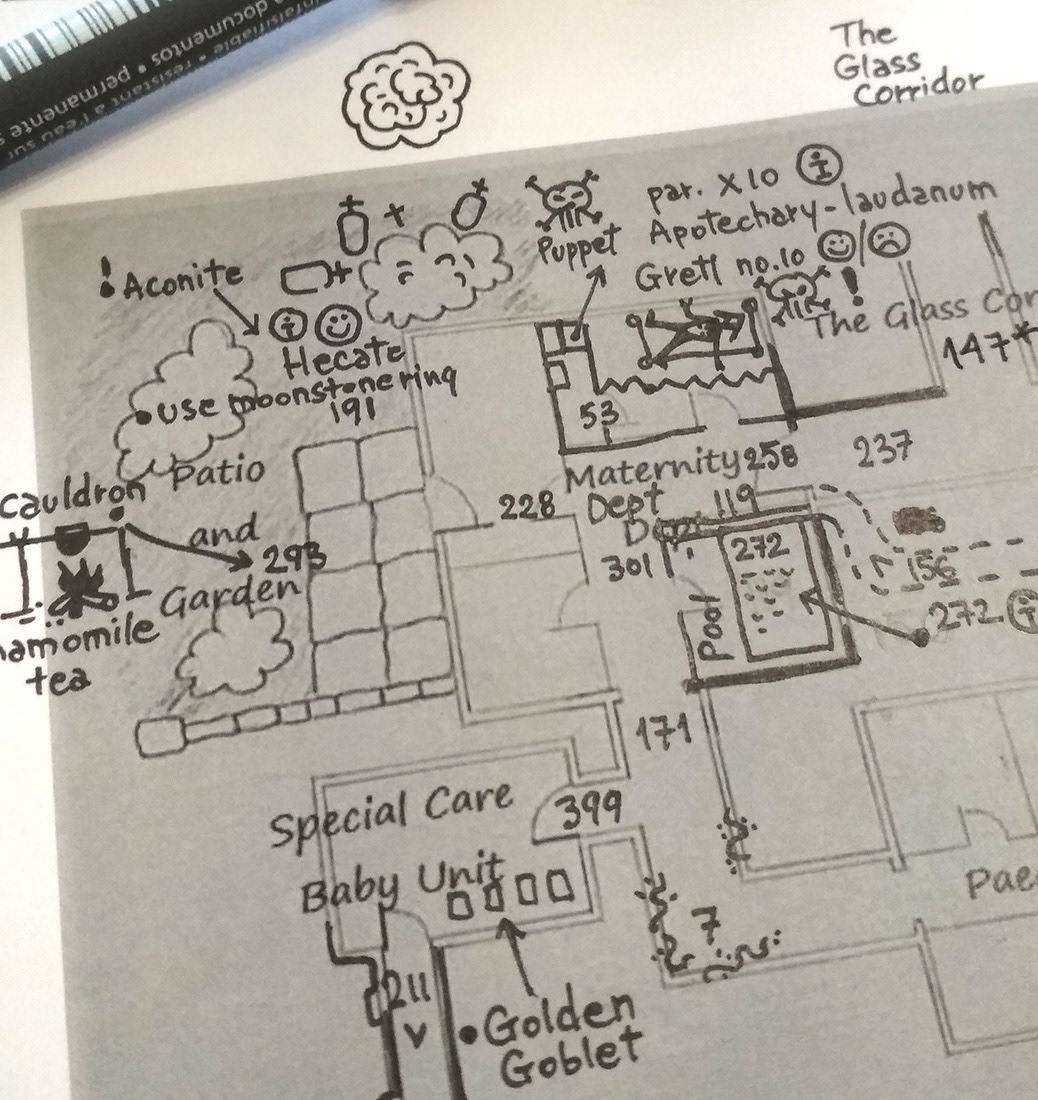 documentos • permanente
resistant à l'eau sur
The
Glass
Corridor
par. x10 i
Apotechary-laudanum
Puppet
Gretl no.10
! Aconite
i
Hecate
• use moonstone ring
191
!
The Glass Cor
147*
53
Maternity 258
237
Dept
228
119
Patio
Cauldron
and
293
Garden
amomile
tea
301
272
Pool
156
272 i
171
Special Care
399
Baby Unit
7
Pae
211
V
• Golden
Goblet